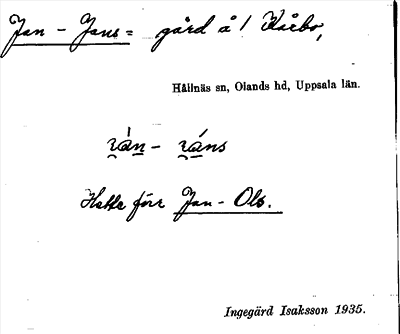 Jan - Jans = gård å / Kårbo,
Hållnäs sn, Olands hd, Uppsala län.
Hette förr Jan - Ols.
Ingegärd Isaksson 1935.